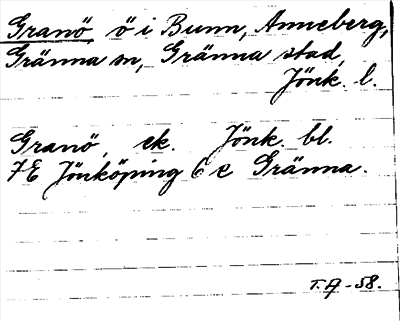 Granö, ö i Bunn, Anneberg,
Gränna sn, Gränna stad,
Jönk. l.
Granö, ek. Jönk. bl.
7E Jönköping 6 e Gränna.
T.A-58.